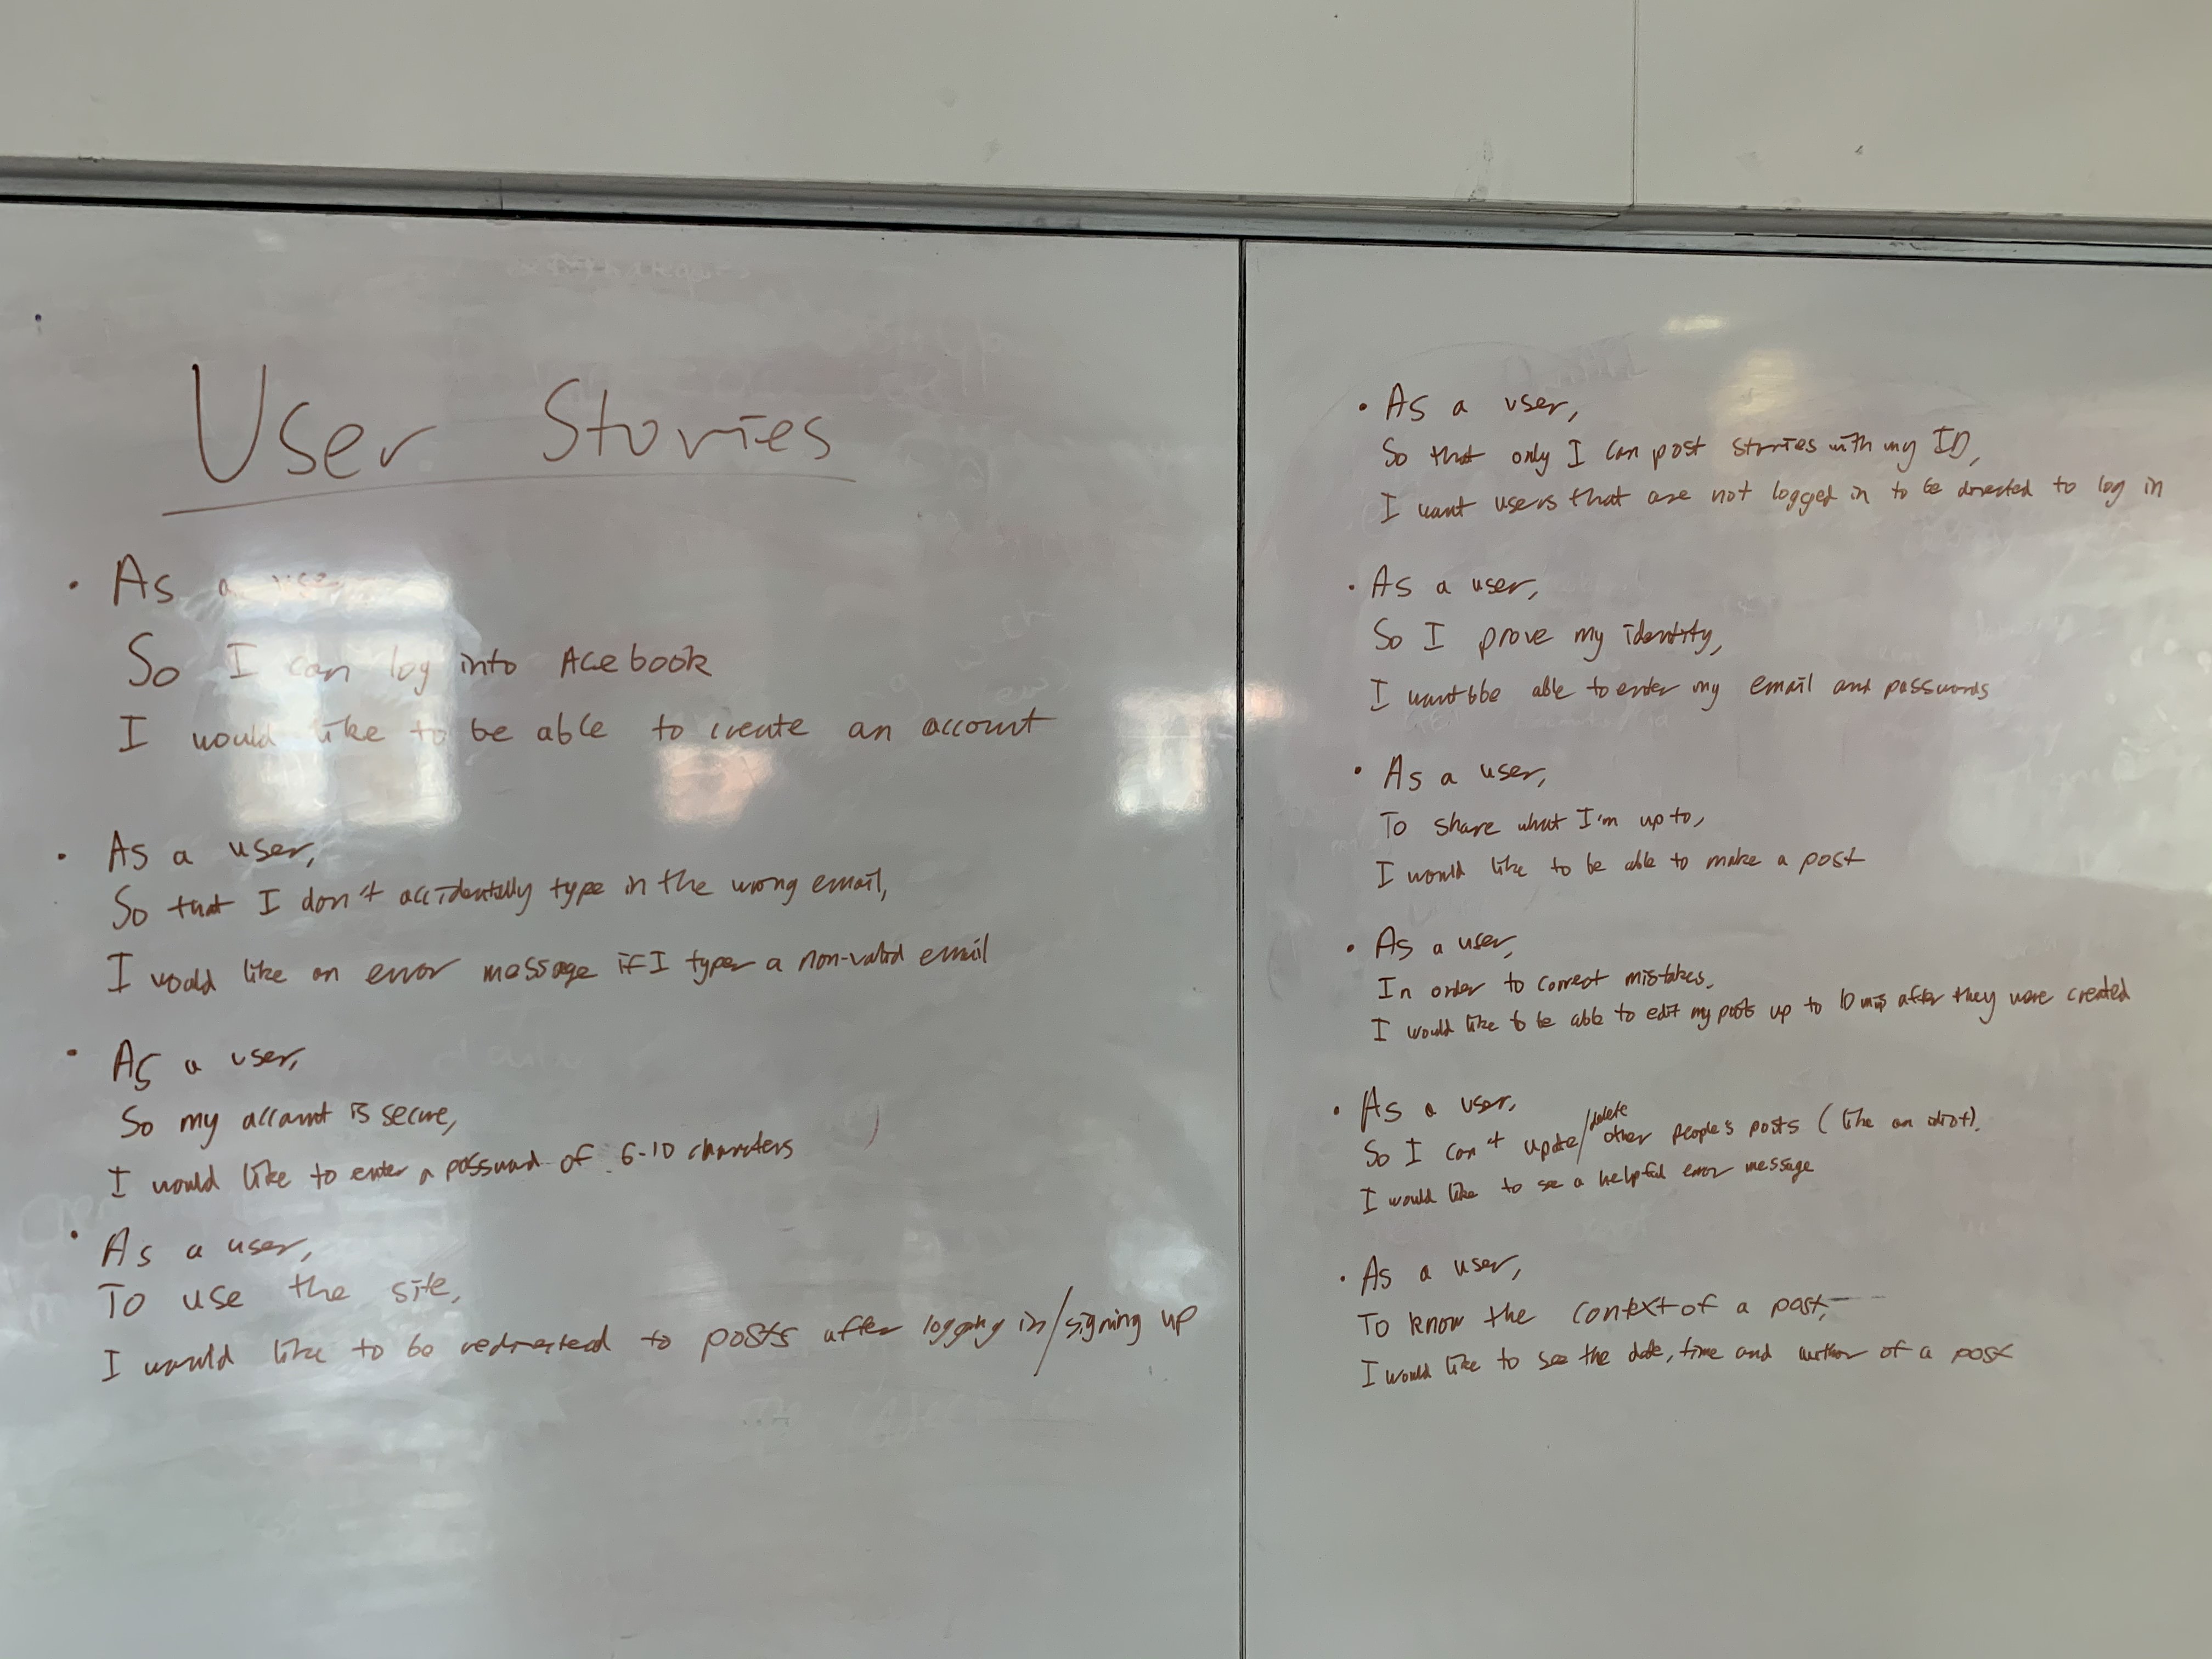 User Stories
· As a user
So I can log into Acebook
I would like to be able to create an account
· As a user,
So that I don't accidentally type in the wrong email,
I would like an error message if I typer a non-valid email
· As a user,
So my account is secure,
I would like to enter a password of 6-10 characters
· As a user,
To use the site,
I would like to be redirected to posts after logging in/signing up
· As a user,
So that only I can post stories with my ID,
I want users that are not logged in to be directed to log in
· As a user,
So I prove my identity,
I want to be able to enter my email and passwords
· As a user,
To share what I'm up to,
I would like to be able to make a post
· As a user,
In order to correct mistakes,
I would like to be able to edit my posts up to 10 mins after they were created
· As a user,
So I can't update/delete other people's posts (like an idiot),
I would like to see a helpful error message
· As a user,
To know the context of a post,
I would like to see the date, time and author of a post